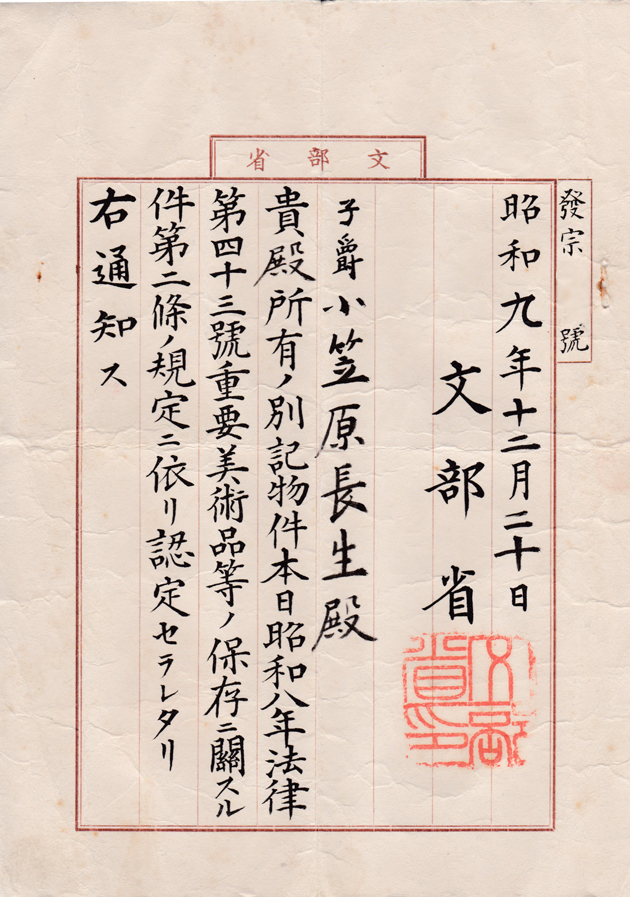 文部省
發宗 號
昭和九年十二月二十日
文部省
文部省印
子爵小笠原長生殿
貴殿所有ノ別記物件本日昭和八年法律
第四十三號重要美術品等ノ保存ニ關スル
件第二條ノ規定ニ依リ認定セラレタリ
右通知ス